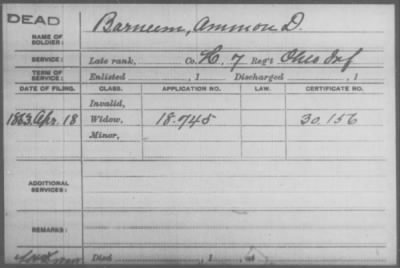 DEAD
NAME OF SOLDIER: Barnum, Ammon D.
SERVICE: Late rank, Co. H, 7 Reg't Ohio Inf
TERM OF SERVICE: Enlisted , 1 Discharged , 1
DATE OF FILING. CLASS. APPLICATION NO. LAW. CERTIFICATE NO.
Invalid,
1863. Apr. 18 Widow, 18.745 30.156
Minor,
ADDITIONAL SERVICES:
REMARKS:
Died , 1 , at